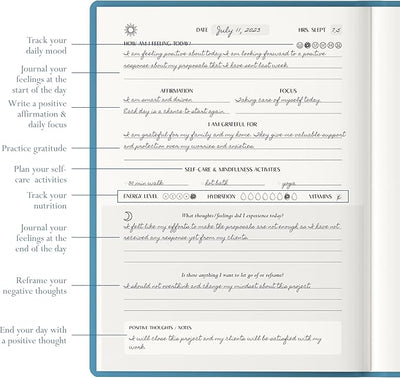 Track your
daily mood
Journal your
feelings at the
start of the day
Write a positive
affirmation &
daily focus
Practice gratitude
Plan your self-
care activities
Track your
nutrition
Journal your
feelings at the
end of the day
Reframe your
negative thoughts
End your day with
a positive thought
DATE July 11, 2023 HRS. SLEPT 7,5
HOW AM I FEELING TODAY?
I am feeling positive about today. I am looking forward to a positive
response about my proposals that I have sent last week.
AFFIRMATION FOCUS
I am smart and driven. Taking care of myself today.
Each day is a chance to start again.
I AM GRATEFUL FOR
I am grateful for my family and my home. They give me valuable support
and protection over my worries and anxieties.
SELF-CARE & MINDFULNESS ACTIVITIES
30 min walk hot bath yoga
ENERGY LEVEL HYDRATION VITAMINS
What thoughts/feelings did I experience today?
I felt like my efforts to make the proposals are not enough as I have not
received any response yet from my clients.
Is there anything I want to let go of or reframe?
I should not overthink and change my mindset about this project.
POSITIVE THOUGHTS / NOTES
I will close this project and my clients will be satisfied with my
work.